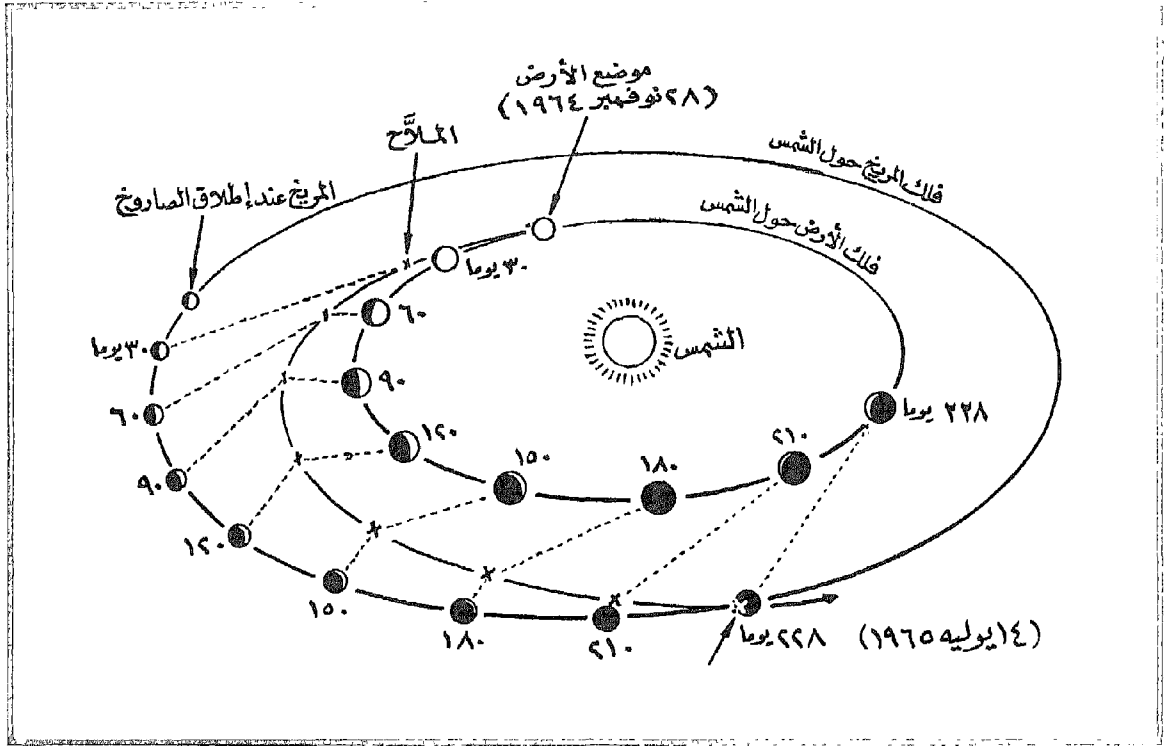 موضع الأرض
(٢٨ نوفمبر ١٩٦٤)
الملاَّح
المريخ عند إطلاق الصاروخ
فلك المريخ حول الشمس
فلك الأرض حول الشمس
الشمس
٣٠ يوما
٦٠
٩٠
١٢٠
١٥٠
١٨٠
٢١٠
٢٢٨ يوما
٣٠ يوما
٦٠
٩٠
١٢٠
١٥٠
١٨٠
٢١٠
٢٢٨ يوما (١٤ يوليه ١٩٦٥)